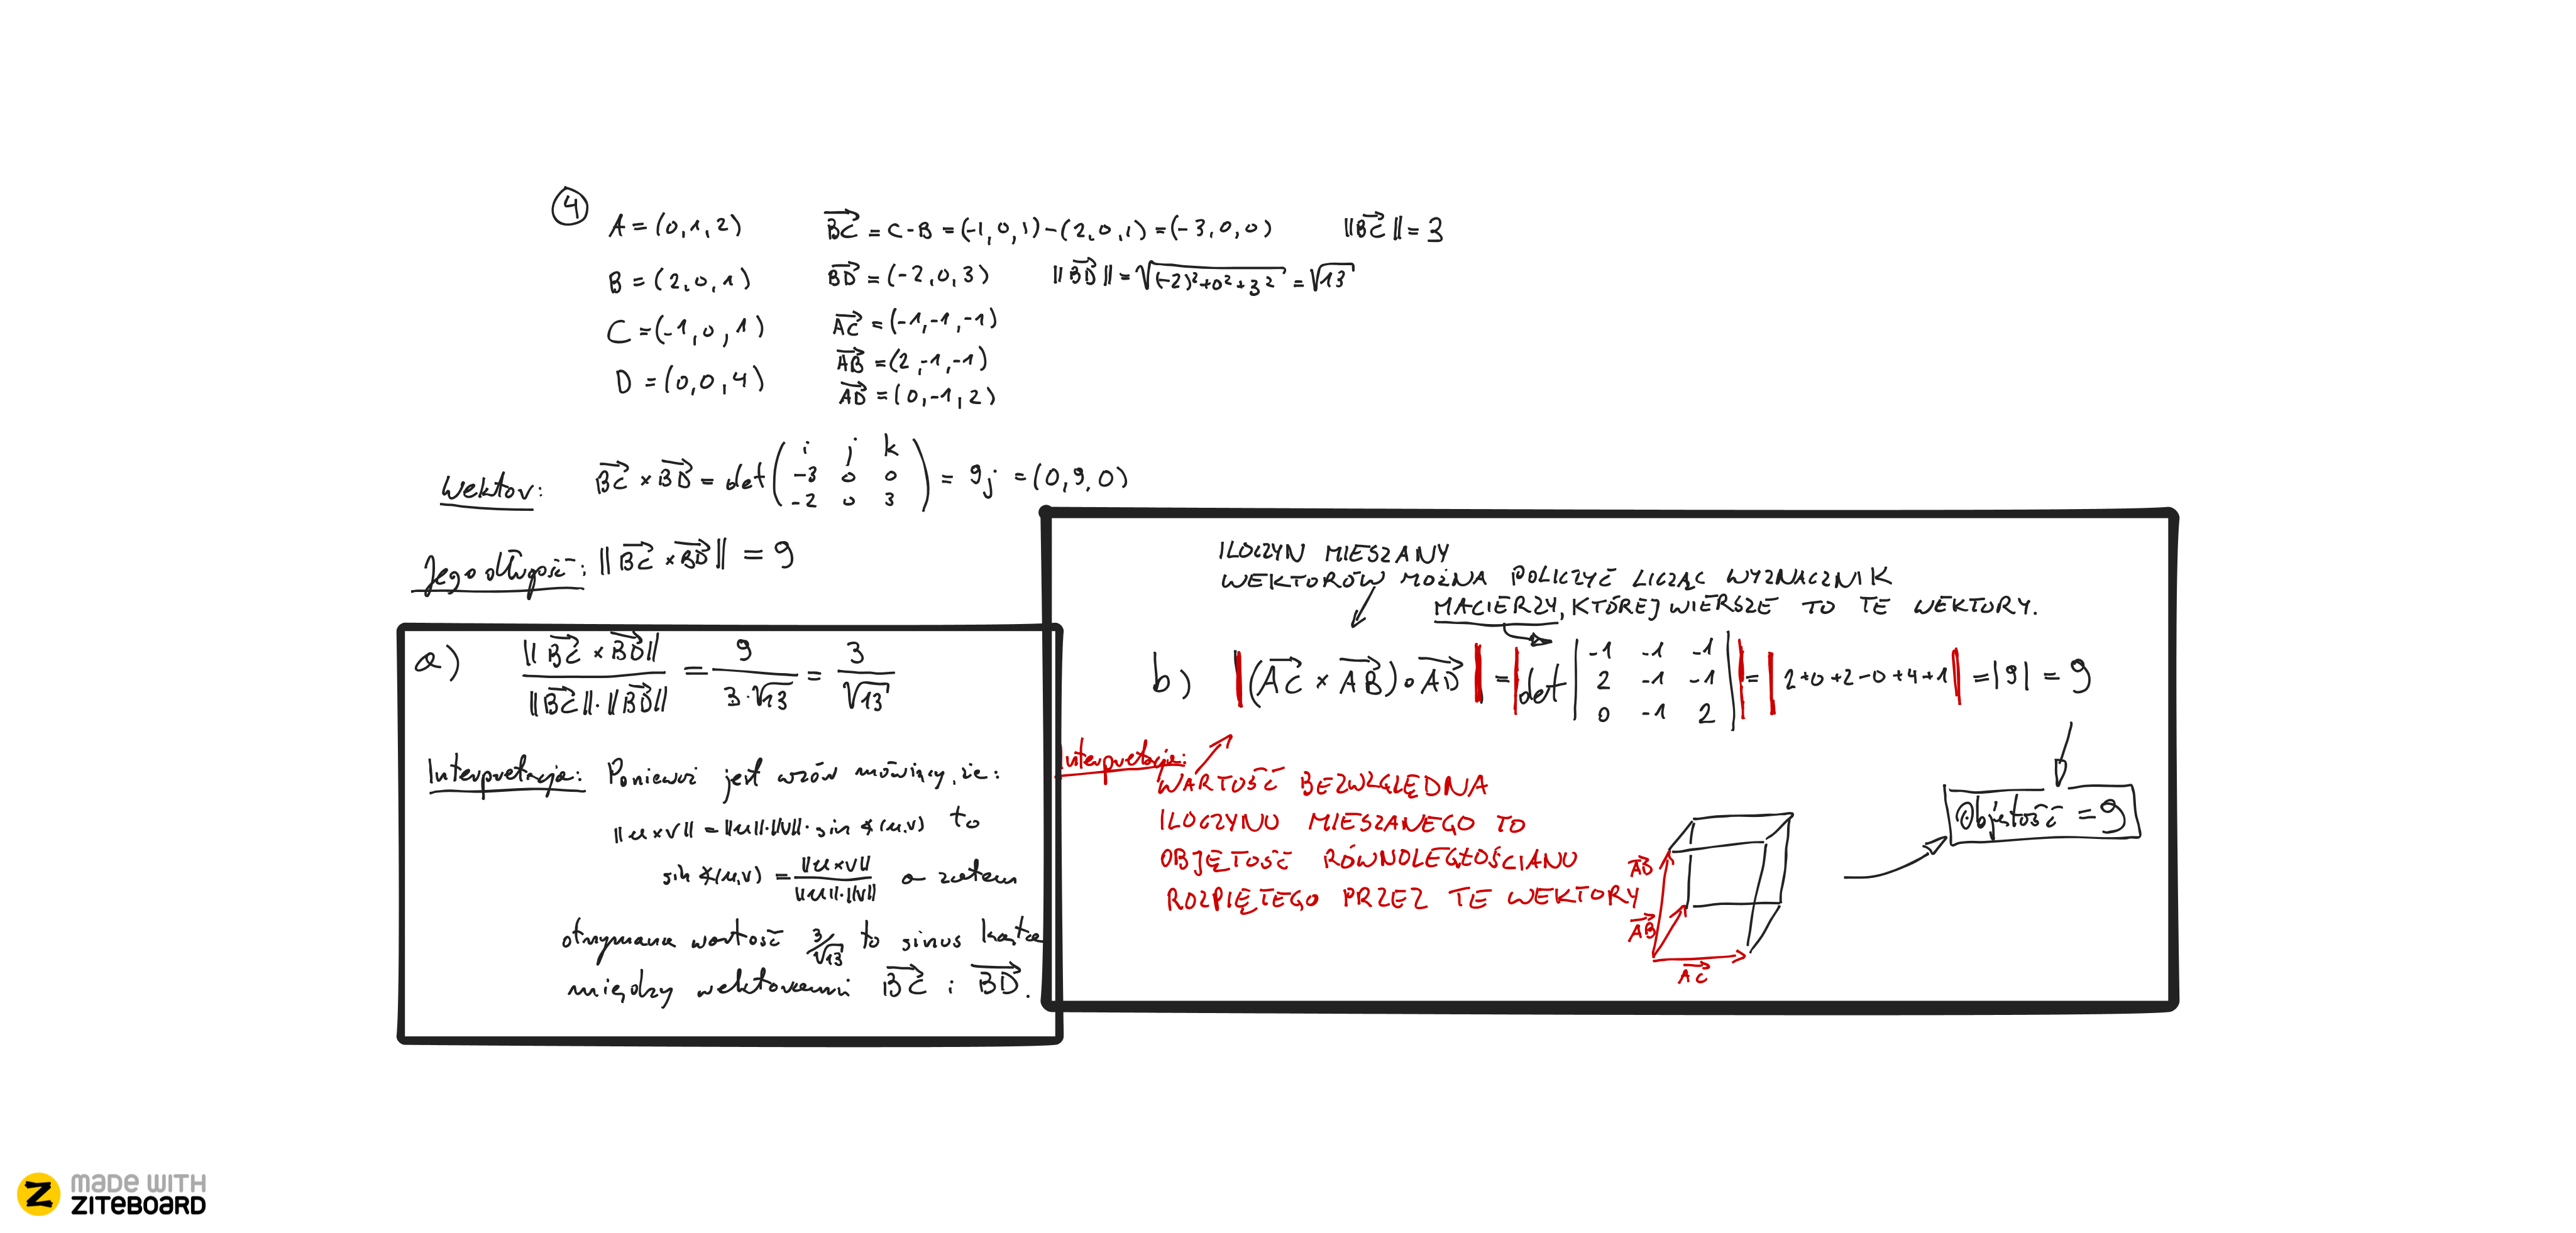 4
A = (0,1,2)
B = (2,0,1)
C = (-1,0,1)
D = (0,0,4)
BC = C-B = (-1,0,1)-(2,0,1) = (-3,0,0) ||BC|| = 3
BD = (-2,0,3) ||BD|| = √((-2)²+0²+3²) = √13
AC = (-1,-1,-1)
AB = (2,-1,-1)
AD = (0,-1,2)
Wektor: BC × BD = det ( i j k
-3 0 0
-2 0 3 ) = 9j = (0,9,0)
Jego długość: ||BC × BD|| = 9
a) ||BC × BD|| / ||BC||·||BD|| = 9 / 3·√13 = 3 / √13
Interpretacja: Ponieważ jest wzór mówiący, że:
||u×v|| = ||u||·||v||·sin∢(u,v) to
sin∢(u,v) = ||u×v|| / ||u||·||v|| a zatem
otrzymana wartość 3/√13 to sinus kąta
między wektorami BC i BD.
ILOCZYN MIESZANY
WEKTORÓW MOŻNA POLICZYĆ LICZĄC WYZNACZNIK
MACIERZY, KTÓREJ WIERSZE TO TE WEKTORY.
b) |(AC × AB)∘AD| = |det | -1 -1 -1
2 -1 -1
0 -1 2 || = |2+0+2-0+4+1| = |9| = 9
Interpretacja:
WARTOŚĆ BEZWZGLĘDNA
ILOCZYNU MIESZANEGO TO
OBJĘTOŚĆ RÓWNOLEGŁOŚCIANU
ROZPIĘTEGO PRZEZ TE WEKTORY
AD
AB
AC
Objętość = 9
MADE WITH
ZITEBOARD